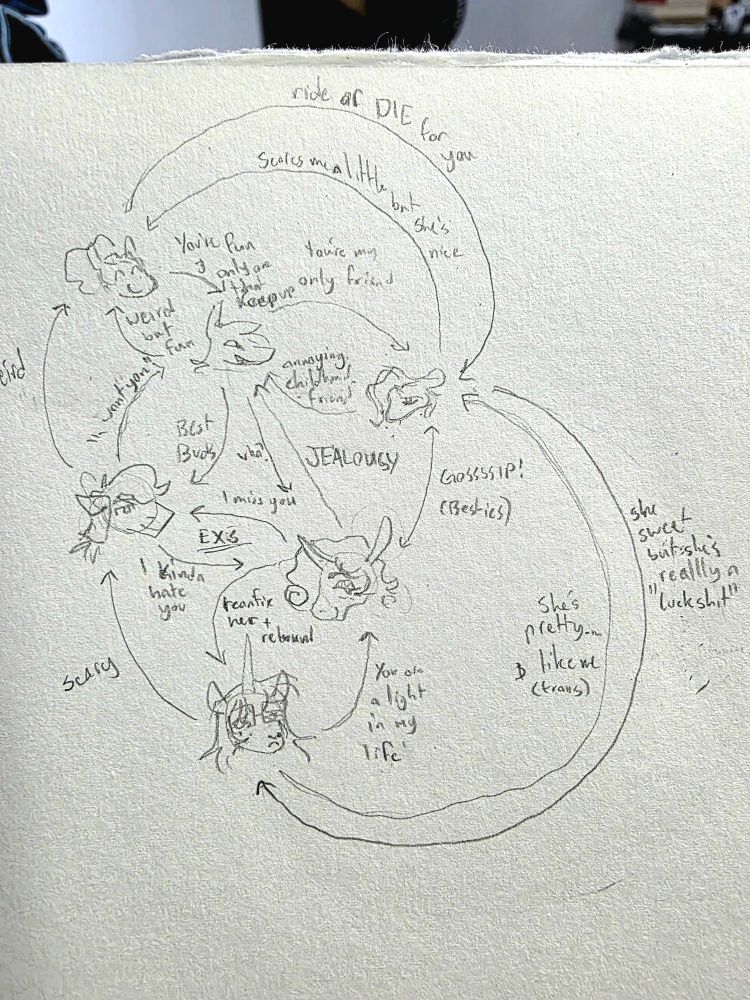 ride or DIE for you
Scares me a little but she's nice
You're fun
& only one
that
keep up
You're my
only friend
weird
but
fun
"I want you"
annoying
childhood
friend
Best
Buds
what?
JEALOUSY
GOSSSSIP!
(Besties)
I miss you
EX'S
I kinda
hate
you
reanfix
her +
rebound
scary
You are
a light
in my
life'
She's
pretty...
& like me
(trans)
she
sweet
but she's
reallly a
"luckshit"